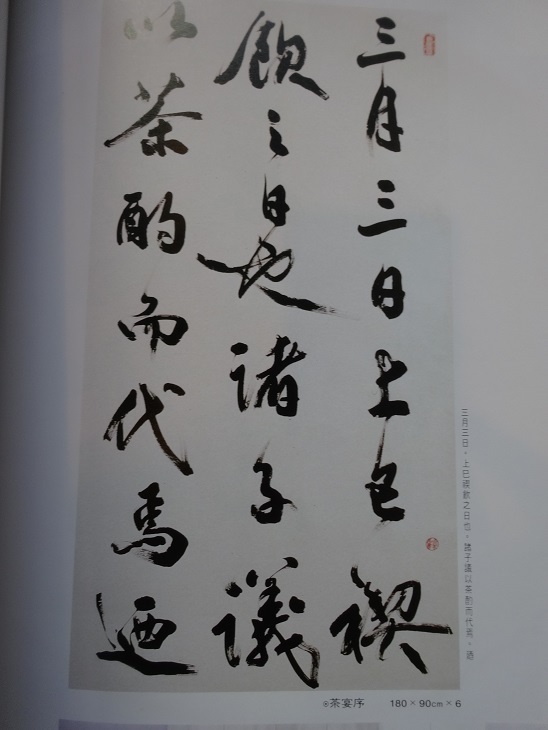 三月三日上巳禊
飲之日也諸子議
以茶酌而代焉迺
三月三日，上巳禊飲之日也，諸子議以茶酌而代焉，迺
⊙茶宴序 180×90cm×6